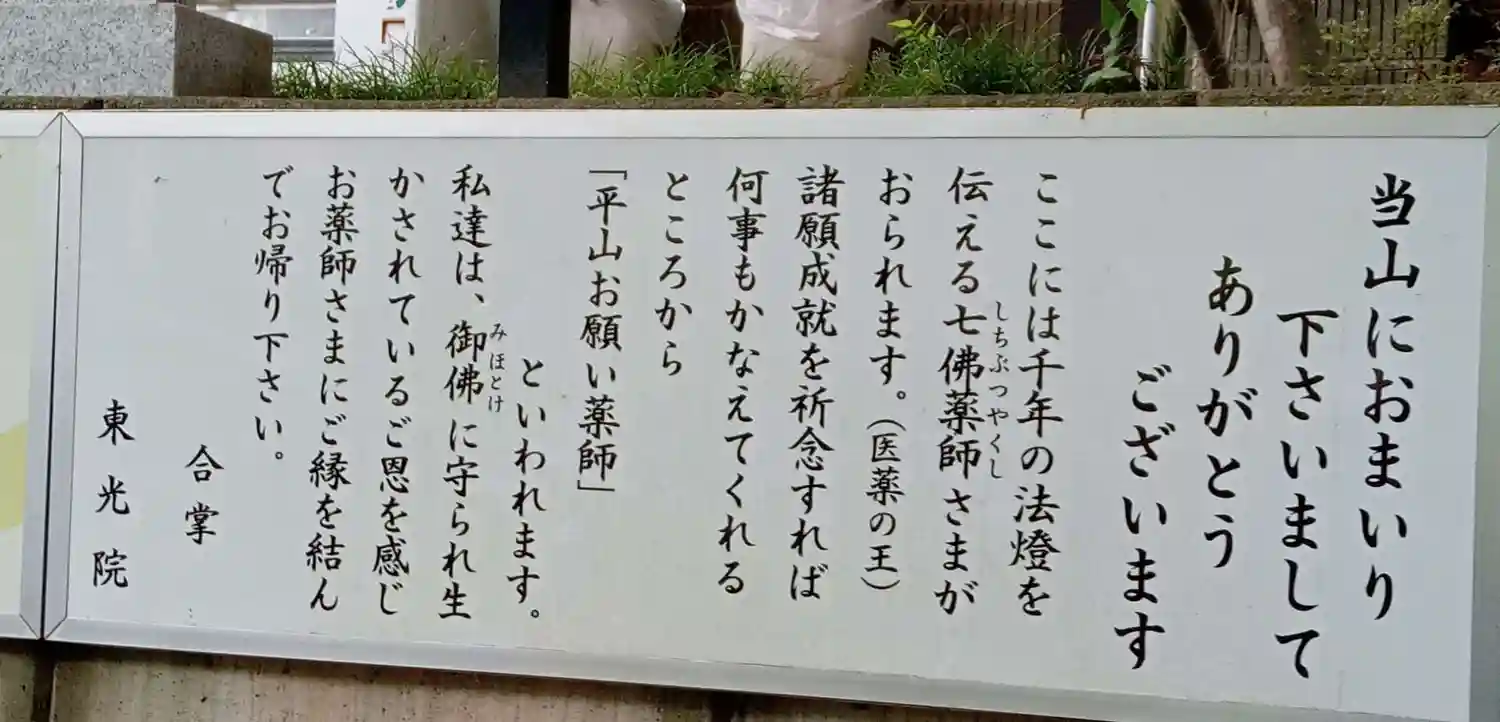 当山におまいり
下さいまして
ありがとう
ございます
ここには千年の法燈を
伝える七佛薬師さまが
しちぶつやくし
おられます。（医薬の王）
諸願成就を祈念すれば
何事もかなえてくれる
ところから
「平山お願い薬師」
といわれます。
私達は、御佛に守られ生
みほとけ
かされているご恩を感じ
お薬師さまにご縁を結ん
でお帰り下さい。
合掌
東光院